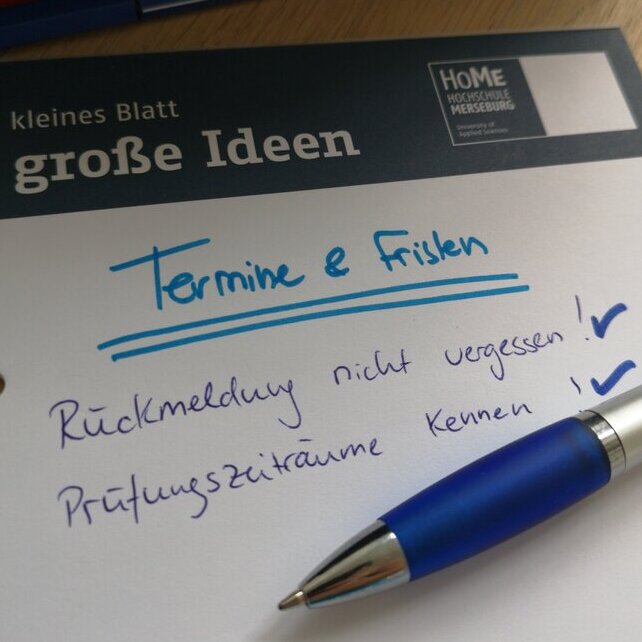 kleines Blatt
große Ideen
HOME
HOCHSCHULE
MERSEBURG
University of
Applied Sciences
Termine & Fristen
Rückmeldung nicht vergessen!
Prüfungszeiträume kennen !